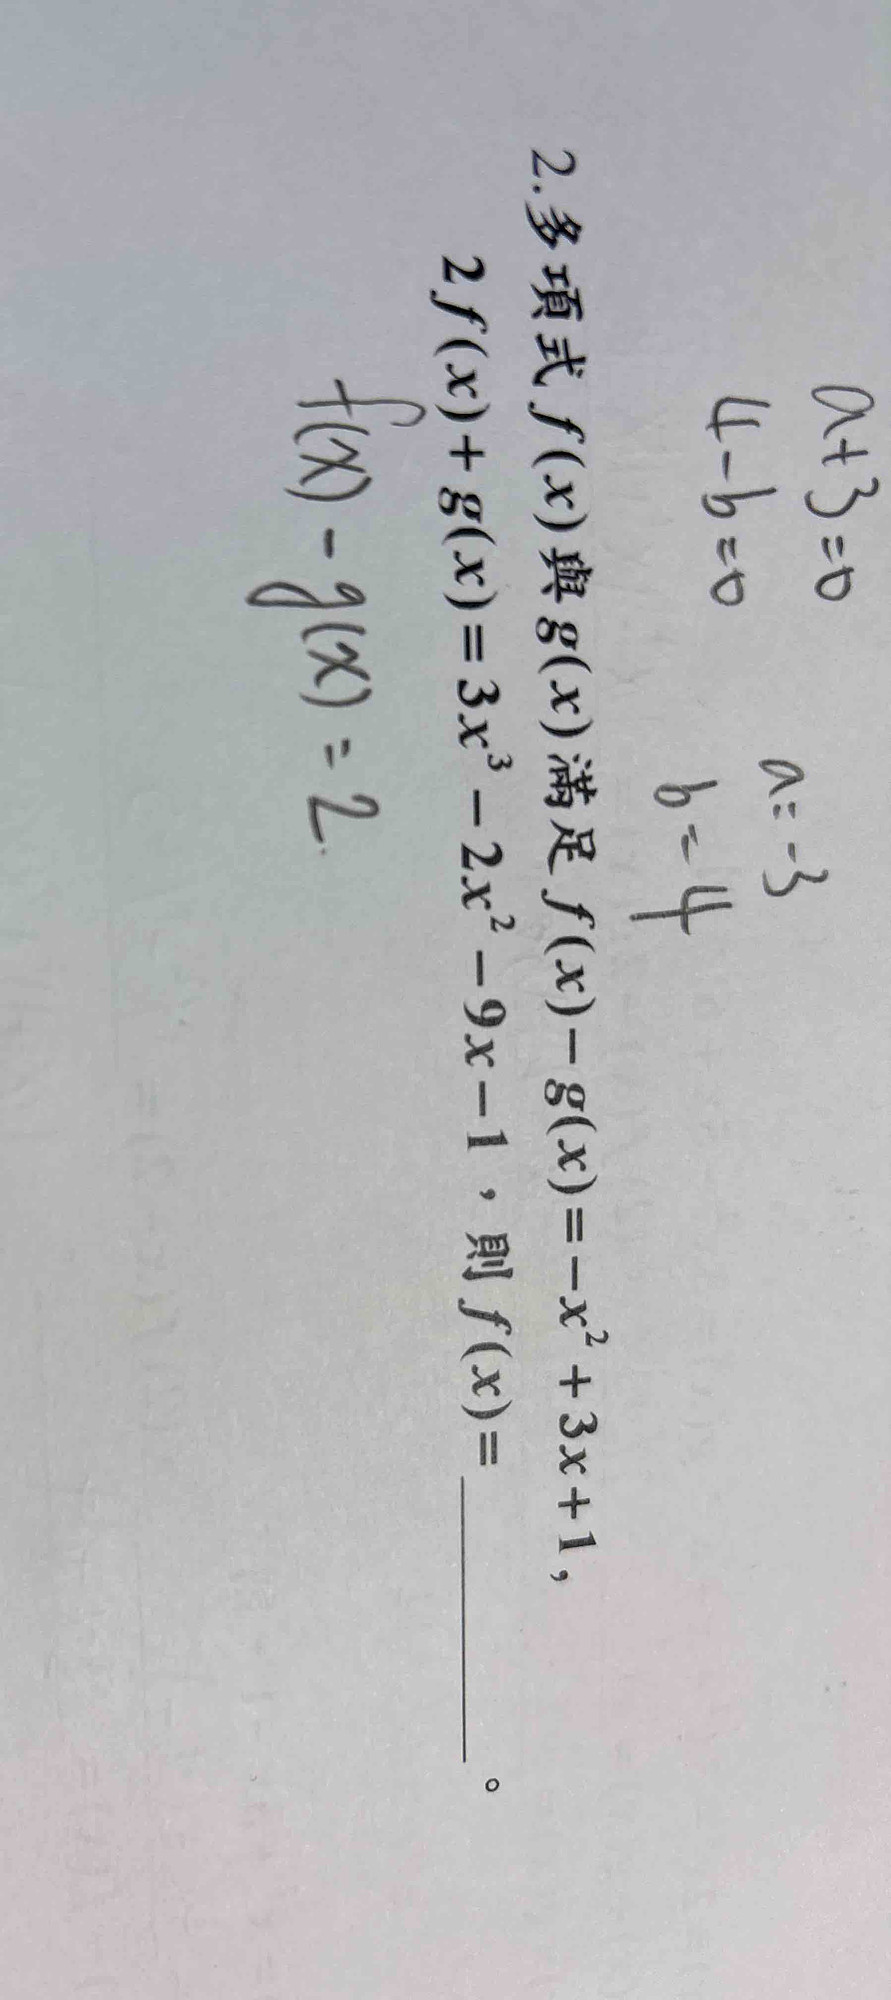 a+3=0 a=-3
4-b=0 b=4
2.多項式 f(x)與g(x)滿足 f(x)-g(x)=-x²+3x+1,
2f(x)+g(x)=3x³-2x²-9x-1,則 f(x)=______。
f(x)-g(x)=2